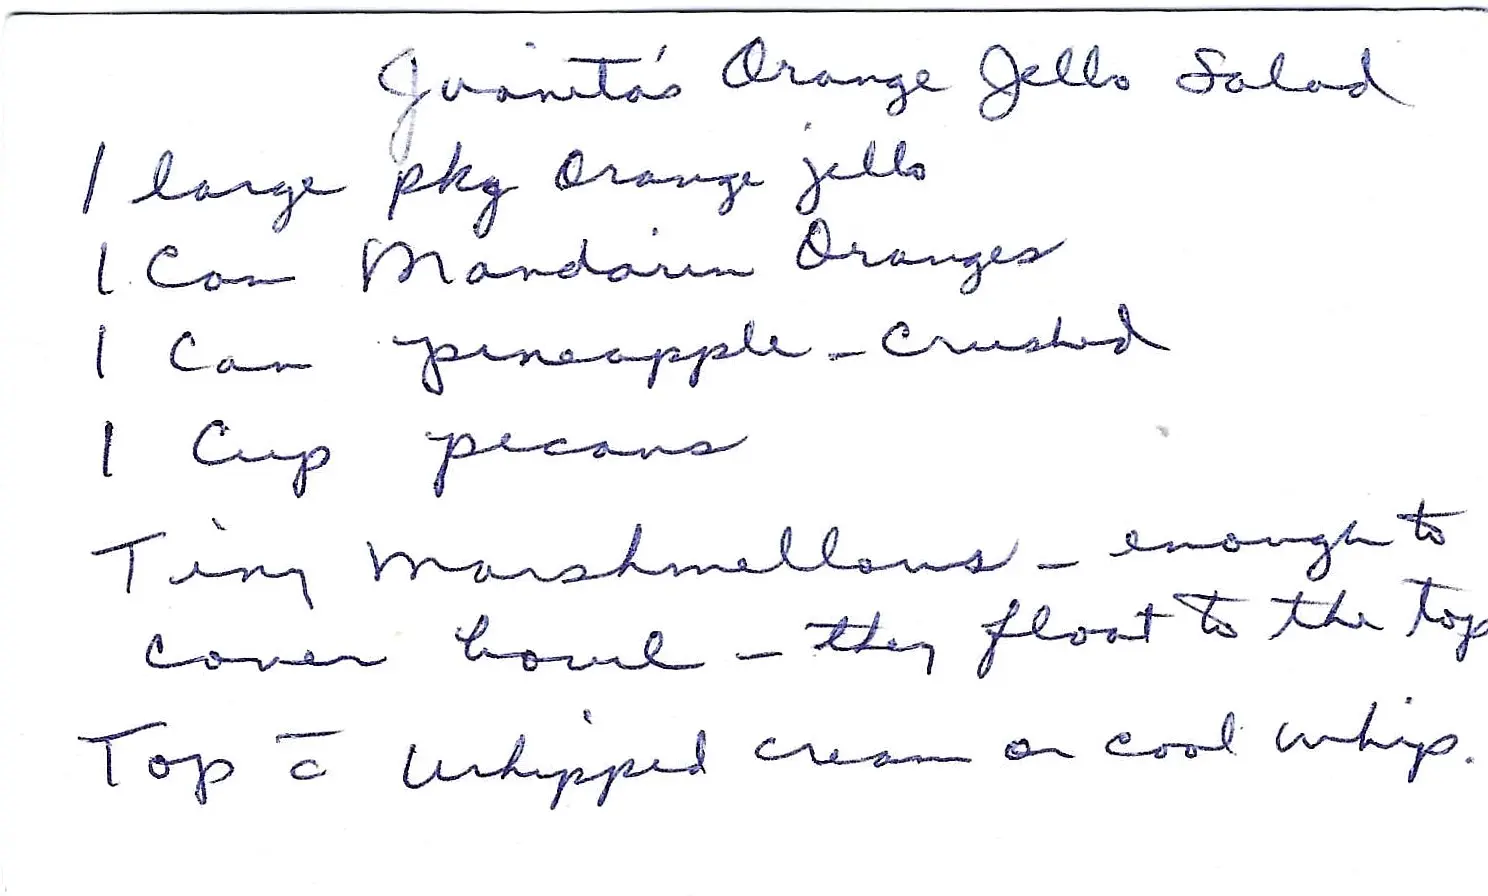 Juanita's Orange Jello Salad
1 large pkg Orange jello
1 Can Mandarin Oranges
1 Can pineapple - Crushed
1 Cup pecans
Tiny Marshmellows - enough to
cover bowl - they float to the top
Top c̄ whipped cream or cool whip.